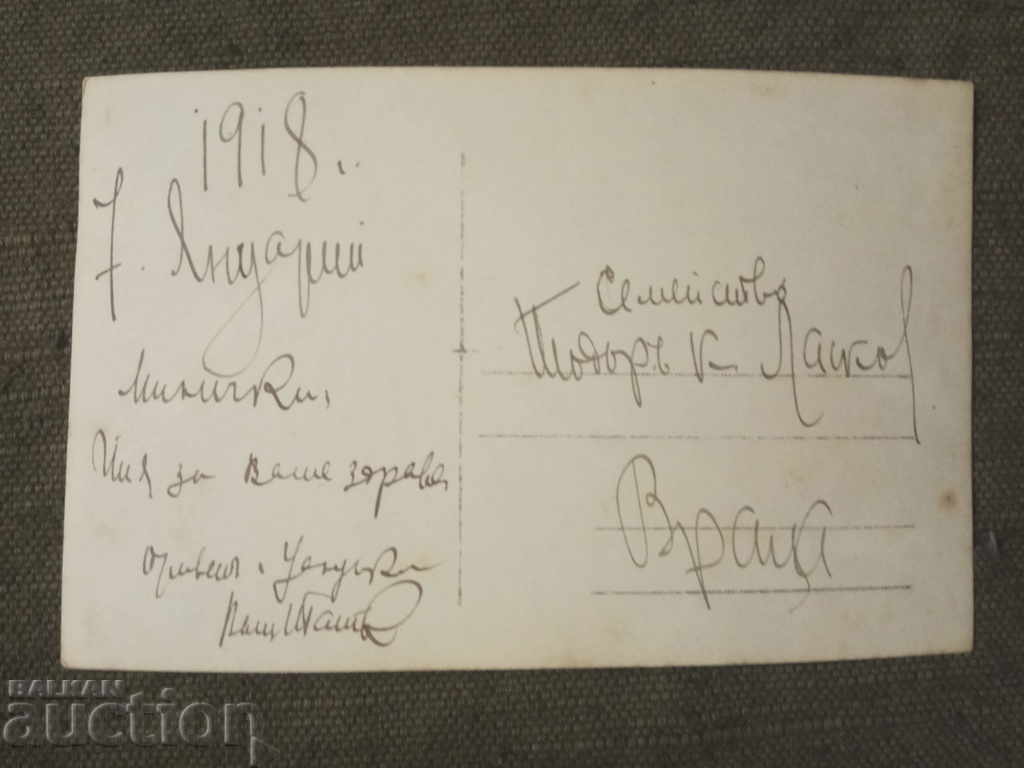 1918..
7. Януарий
Миничка,
Пия за Ваше здраве,
Привет и Целувки
Ваш
Семейство
Тодоръ К. Ласков
Враца
BALKAN
auction